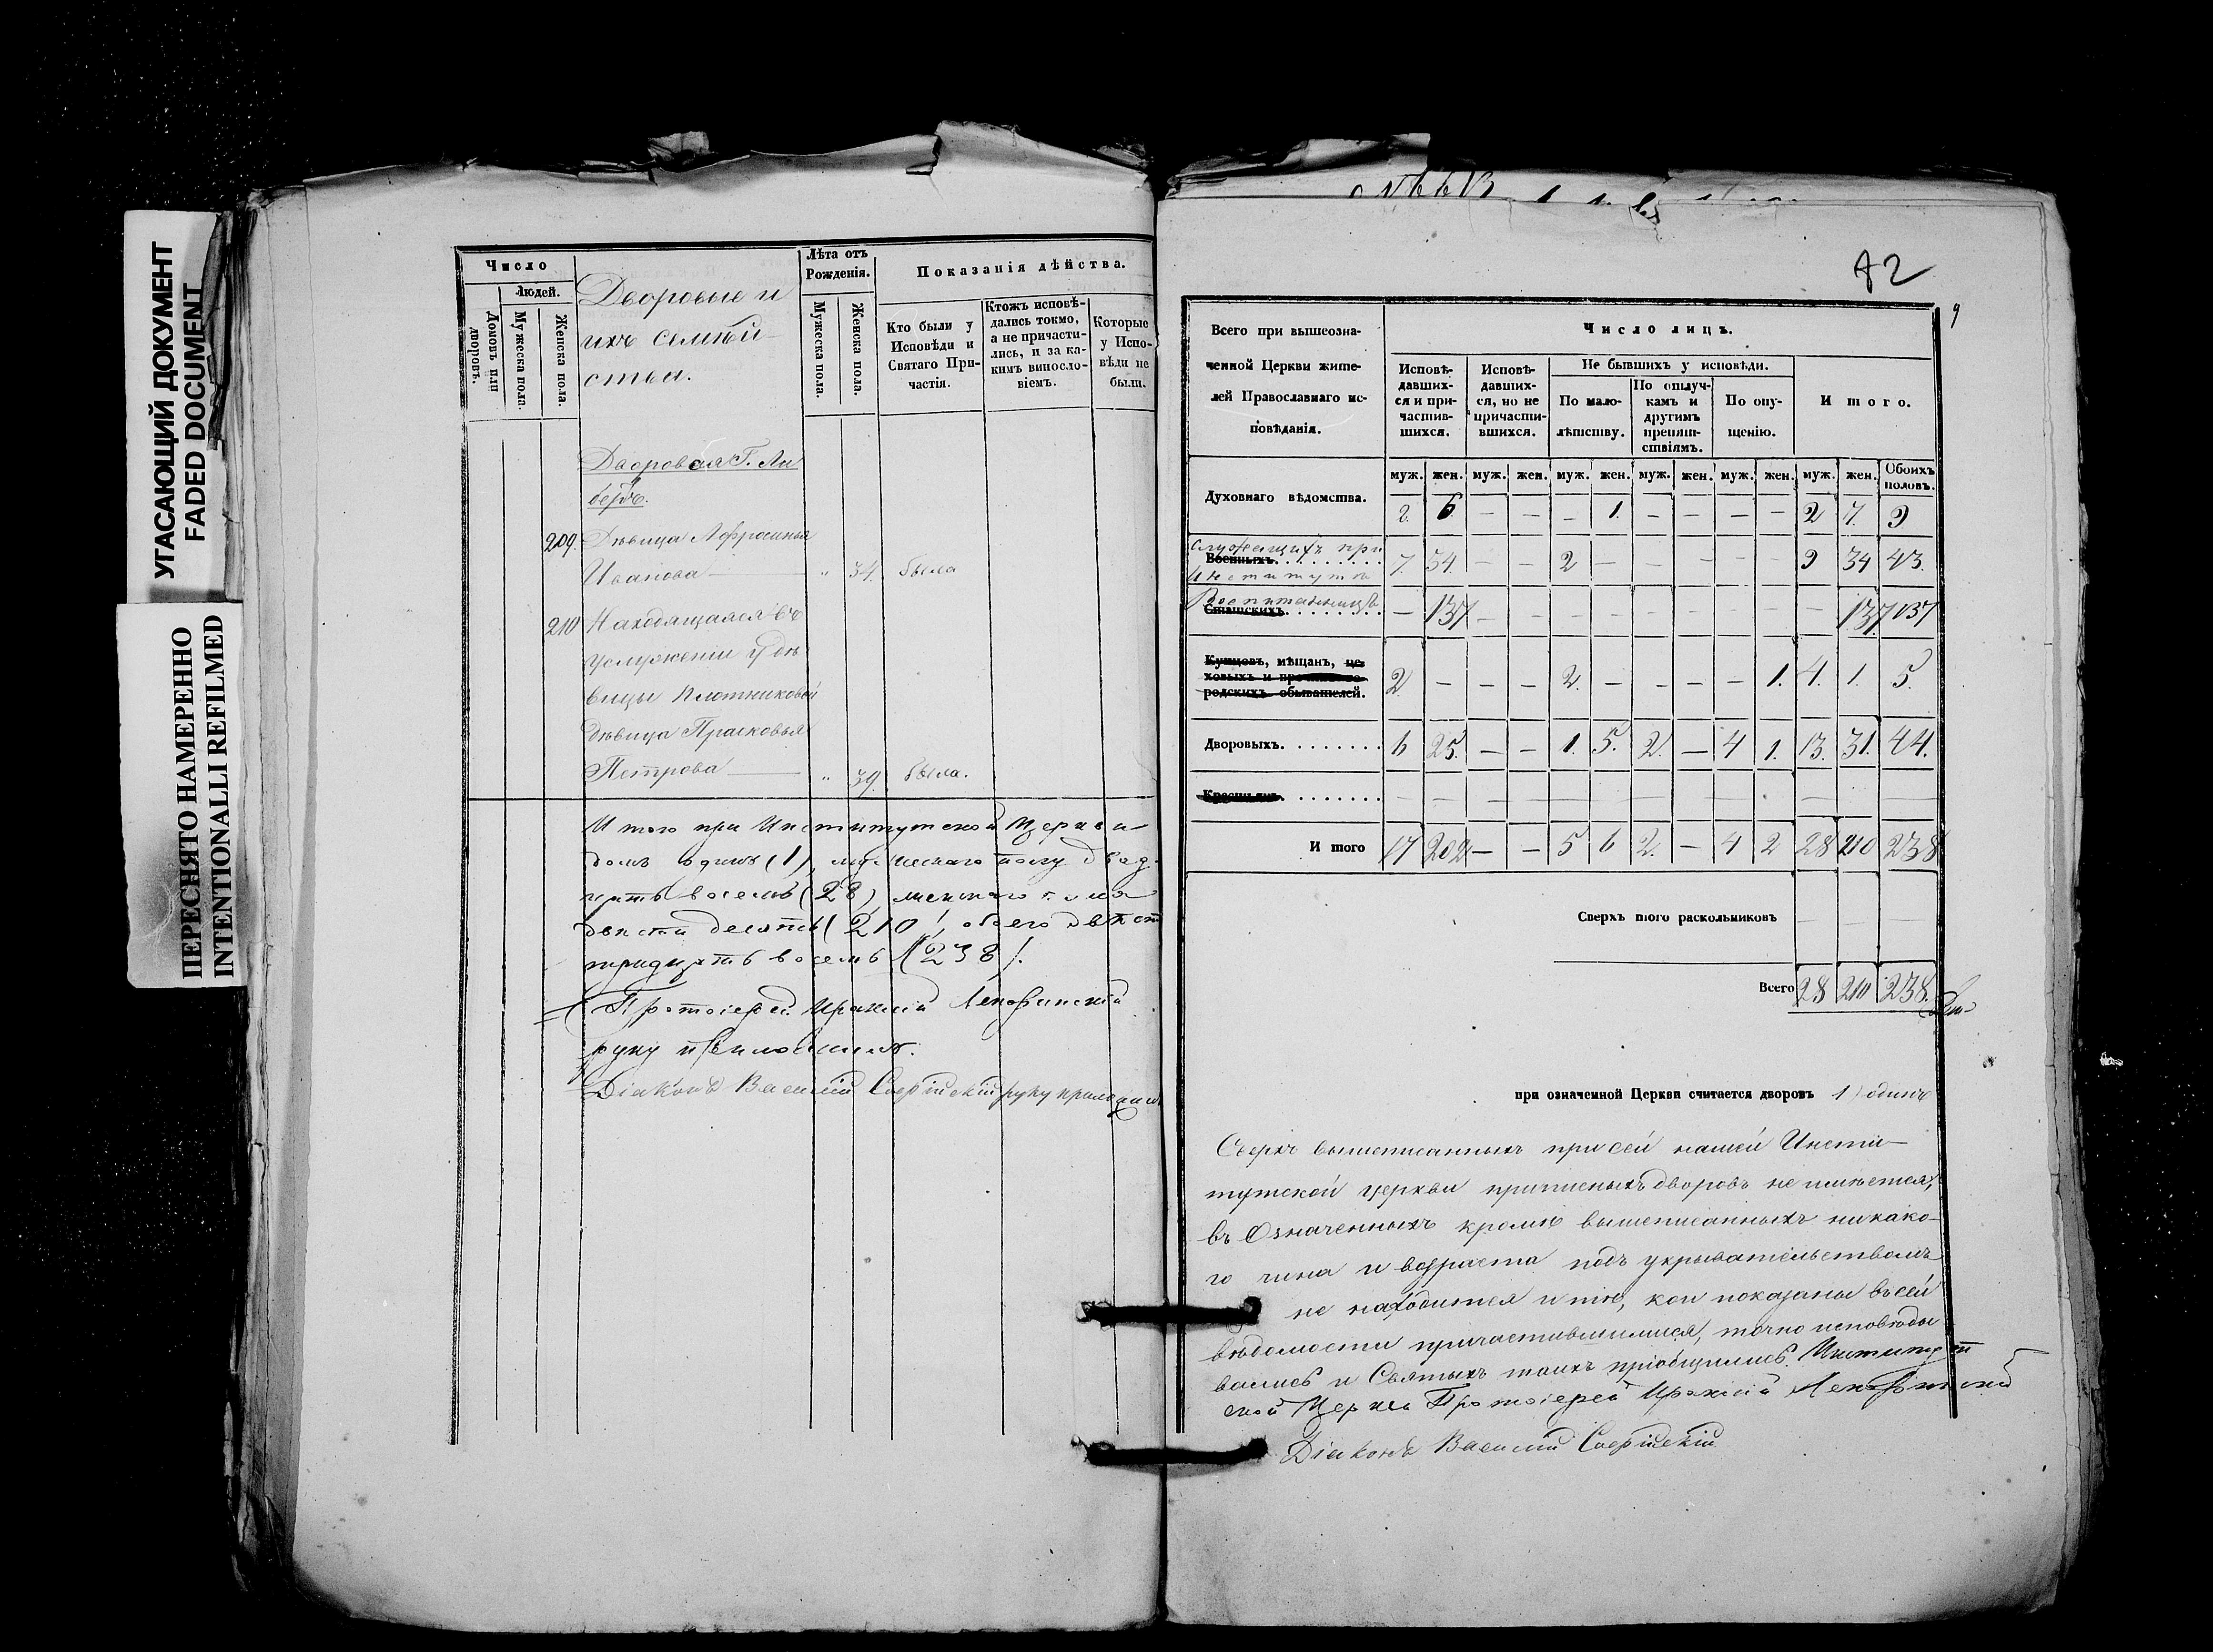 УГАСАЮЩИЙ ДОКУМЕНТ
FADED DOCUMENT
ПЕРЕСНЯТО НАМЕРЕННО
INTENTIONALLI REFILMED
Число
Людей.
Домовъ или дворовъ.
Мужеска пола.
Женска пола.
Дворовые и
ихъ семѣй-
ства.
Лѣта отъ
Рожденія.
Мужеска пола.
Женска пола.
Показанія дѣйства.
Кто были у
Исповѣди и
Святаго При-
частія.
Ктожъ исповѣ-
дались токмо,
а не причасти-
лись, и за ка-
кимъ винослo-
віемъ.
Которые
у Испо-
вѣди не
были.
Дворовая Г. Ли
беръ.
209. Дѣвица Афросинья
Иванова — " 34. была
210 Находящаяся въ
услуженіи у дѣ
вицы Плотниковой
дѣвица Прасковья
Петрова — " 39. была.
Итого при Институтской Церкви
домъ одинъ (1), мужескаго полу двад-
цать восемь (28), женскаго пола
двѣсти десять (210), обоего двѣст
тридцать восемь (238).
Протоіерей Ираклій
руку приложилъ.
Діаконъ Василій руку приложилъ
82
9
Всего при вышеозна-
ченной Церкви жите-
лей Православнаго ис-
повѣданія.
Число лицъ.
Исповѣ-
давших-
ся и при-
частив-
шихся.
Исповѣ-
давших-
ся, но не
причасти-
вшихся.
Не бывшихъ у исповѣди.
По мало-
лѣтству.
По отлуч-
камъ и
другимъ
препят-
ствіямъ.
По опу-
щенію.
Итого.
муж. жен. муж. жен. муж. жен. муж. жен. муж. жен. муж. жен. Обоихъ половъ.
Духовнаго вѣдомства. 2. 6 — — — 1. — — — — 2 7. 9
Служащихъ при
Военныхъ. 7. 34. — — 2 — — — — — 9 34 43.
Институтѣ
Воспитанницъ
Статскихъ. — 137 — — — — — — — — — 137 137
Купцовъ, мѣщанъ, це-
ховыхъ и прочихъ го-
родскихъ обывателей. 2. — — — 2. — — — — 1. 4. 1. 5.
Дворовыхъ. 6 25. — — 1. 5. 2. — 4 1. 13. 31. 44.
Крестьянъ. — — — — — — — — — — — — —
Итого 17 202 — — 5 6 2. — 4 2 28 210 238
Сверхъ того раскольниковъ — — —
Всего 28 210 238.
при означенной Церкви считается дворовъ 1) одинъ
Сверхъ вышеписанныхъ при сей нашей Инсти-
тутской церкви приписныхъ дворовъ не имѣется,
въ Означенныхъ кромѣ вышеписанныхъ никако-
го чина и возраста подъ укрывательствомъ
не находится и тѣ, кои показаны въ сей
вѣдомости причастившимися, точно исповѣды
вались и Святыхъ таинъ пріобщились. Институт
ской Церкви Протоіерей Ираклій
Діаконъ Василій